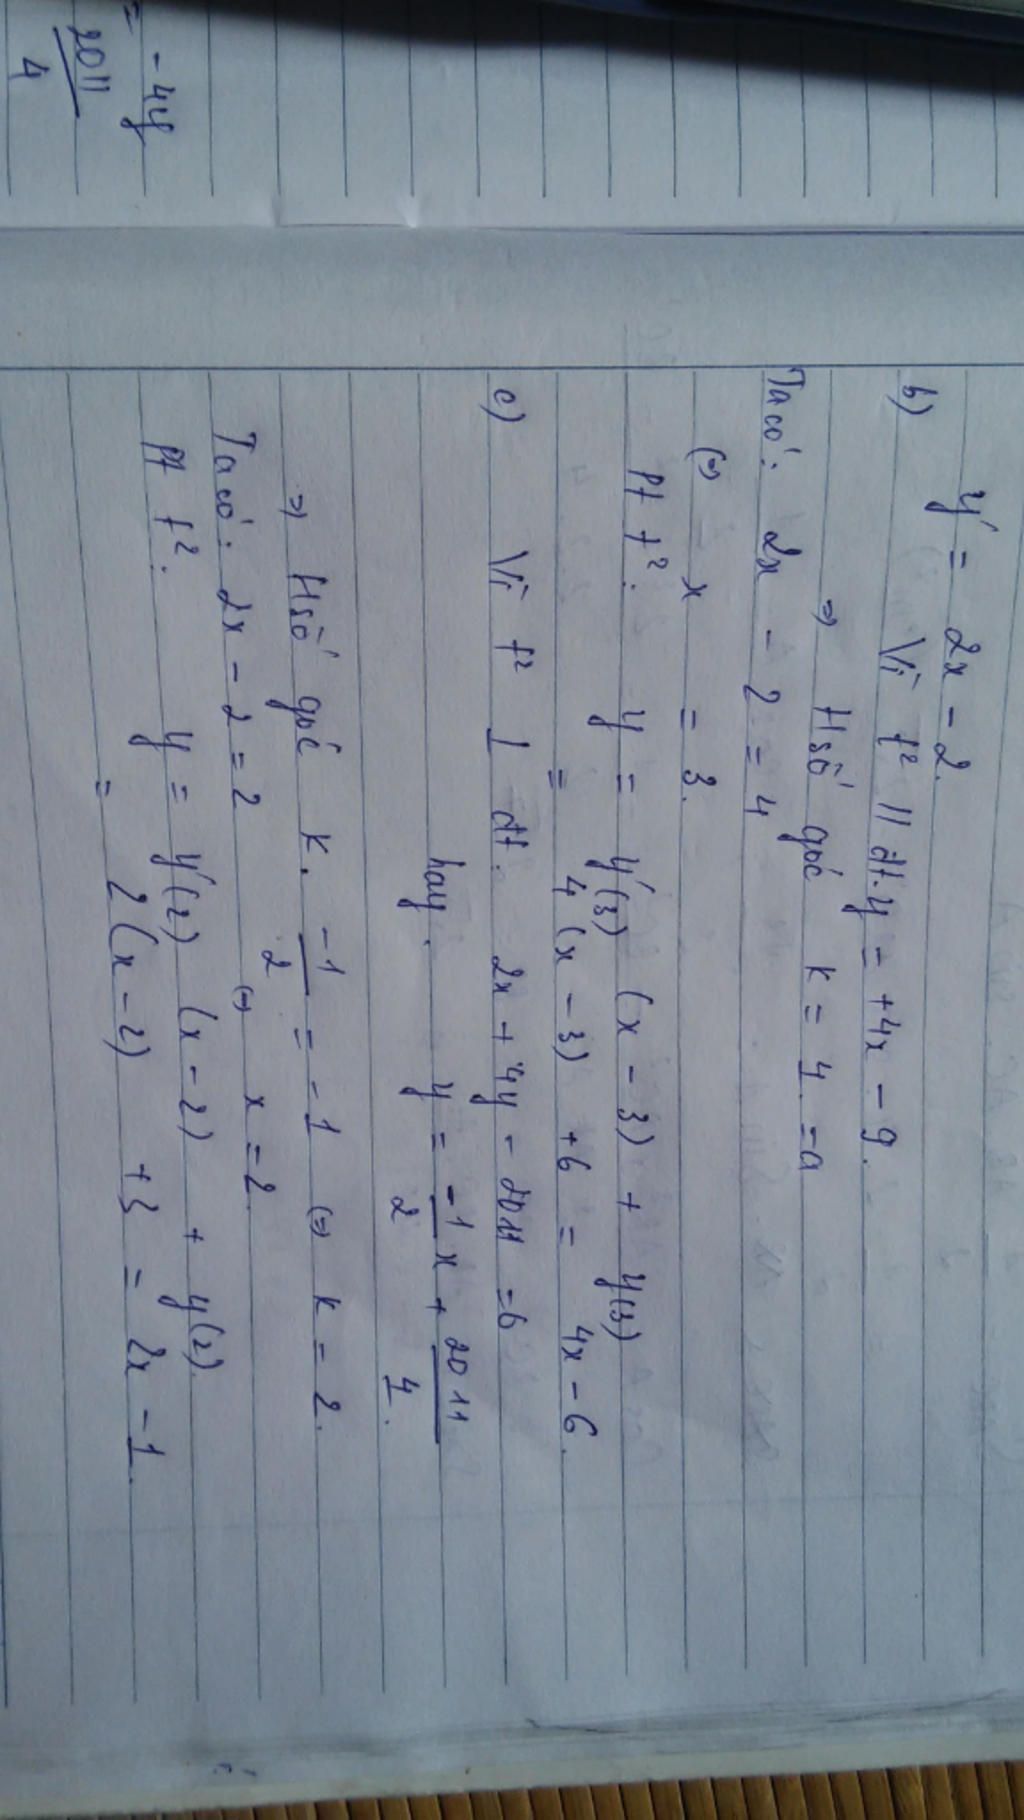 y' = 2x - 2.
b) Vì t² // đt. y = +4x - 9.
=> Hsố góc k = 4 = a
Ta có: 2x - 2 = 4
(=) x = 3.
Pt t². y = y'(3) (x - 3) + y(3)
= 4 (x - 3) +6 = 4x - 6.
c) Vì t² ⊥ đt. 2x + 4y - 2011 = 0
hay. y = -1/2 x + 2011/4.
=> Hsố góc k. -1/2 = -1 (=) k = 2.
Ta có: 2x - 2 = 2 (=) x = 2
Pt t². y = y'(2) (x - 2) + y(2).
= 2 (x - 2) +3 = 2x - 1.
= -4y
2011/4